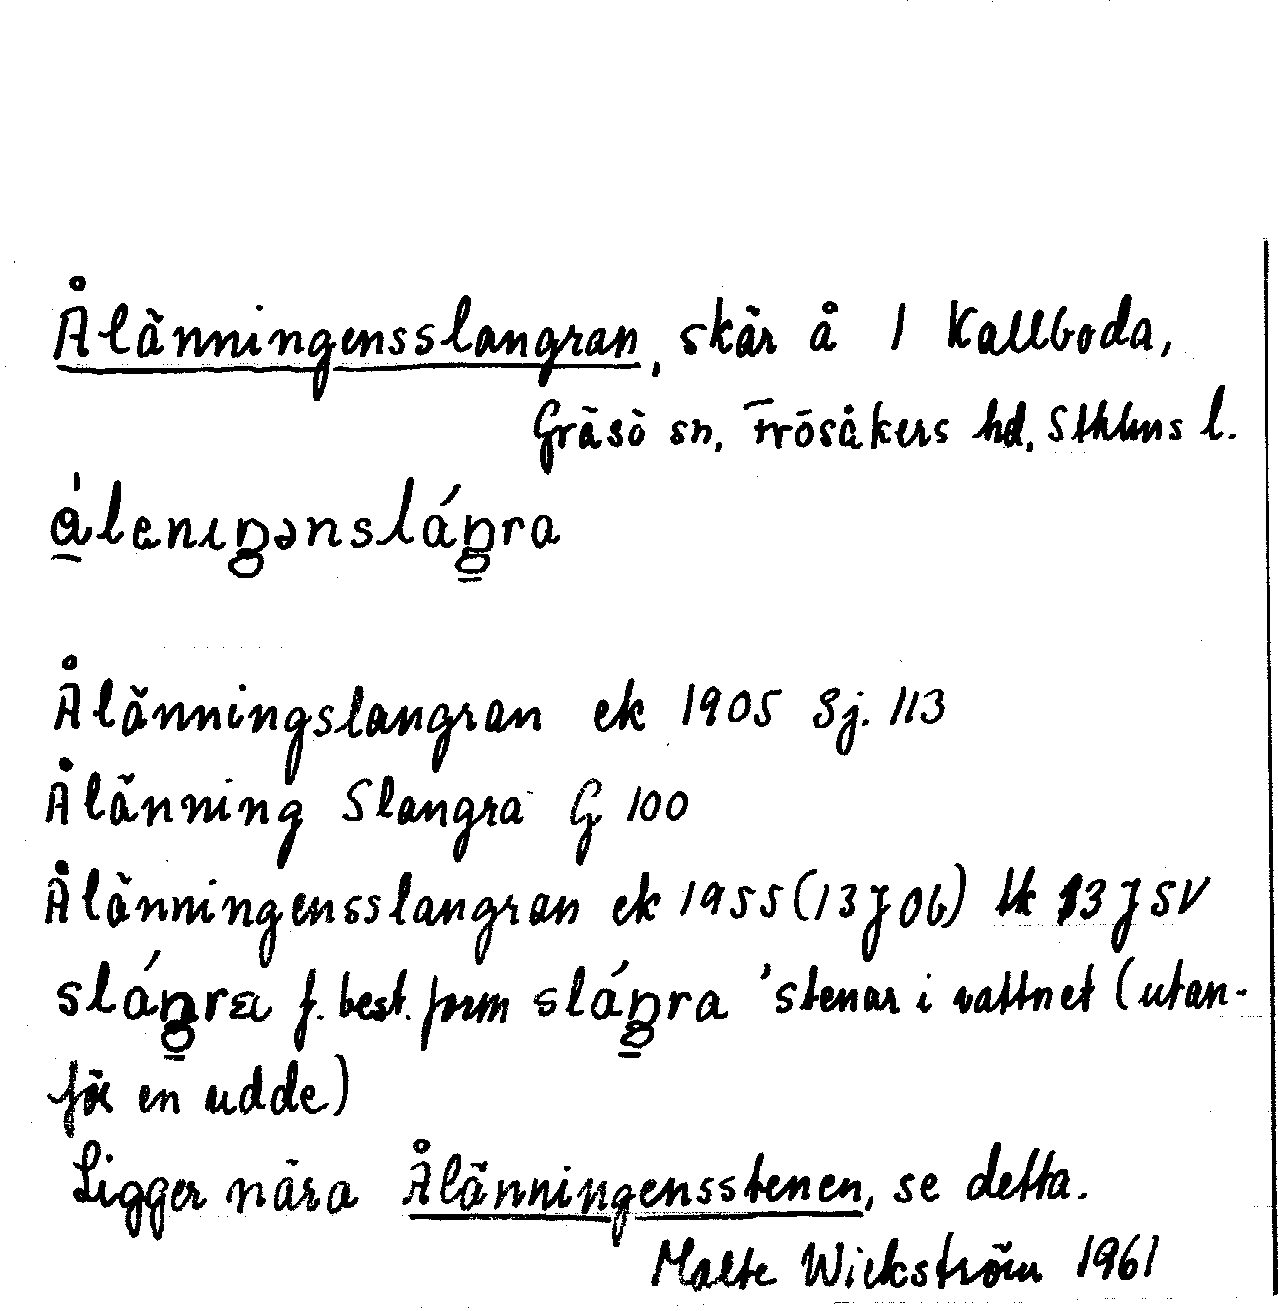 Ålänningensslangran, skär å 1 Kallboda,
Gräsö sn, Frösåkers hd, Sthlms l.
å̱̍lenıŋənsláŋ̳ra
Ålänningslangran ek 1905 Sj. 113
Ålänning Slangra G 100
Ålänningensslangran ek 1955 (13J 06) lk 13J SV
sláŋ̳ra f. best. form sláŋ̳ra 'stenar i vattnet (utan-
för en udde)
Ligger nära Ålänningensstenen, se detta.
Malte Wickström 1961